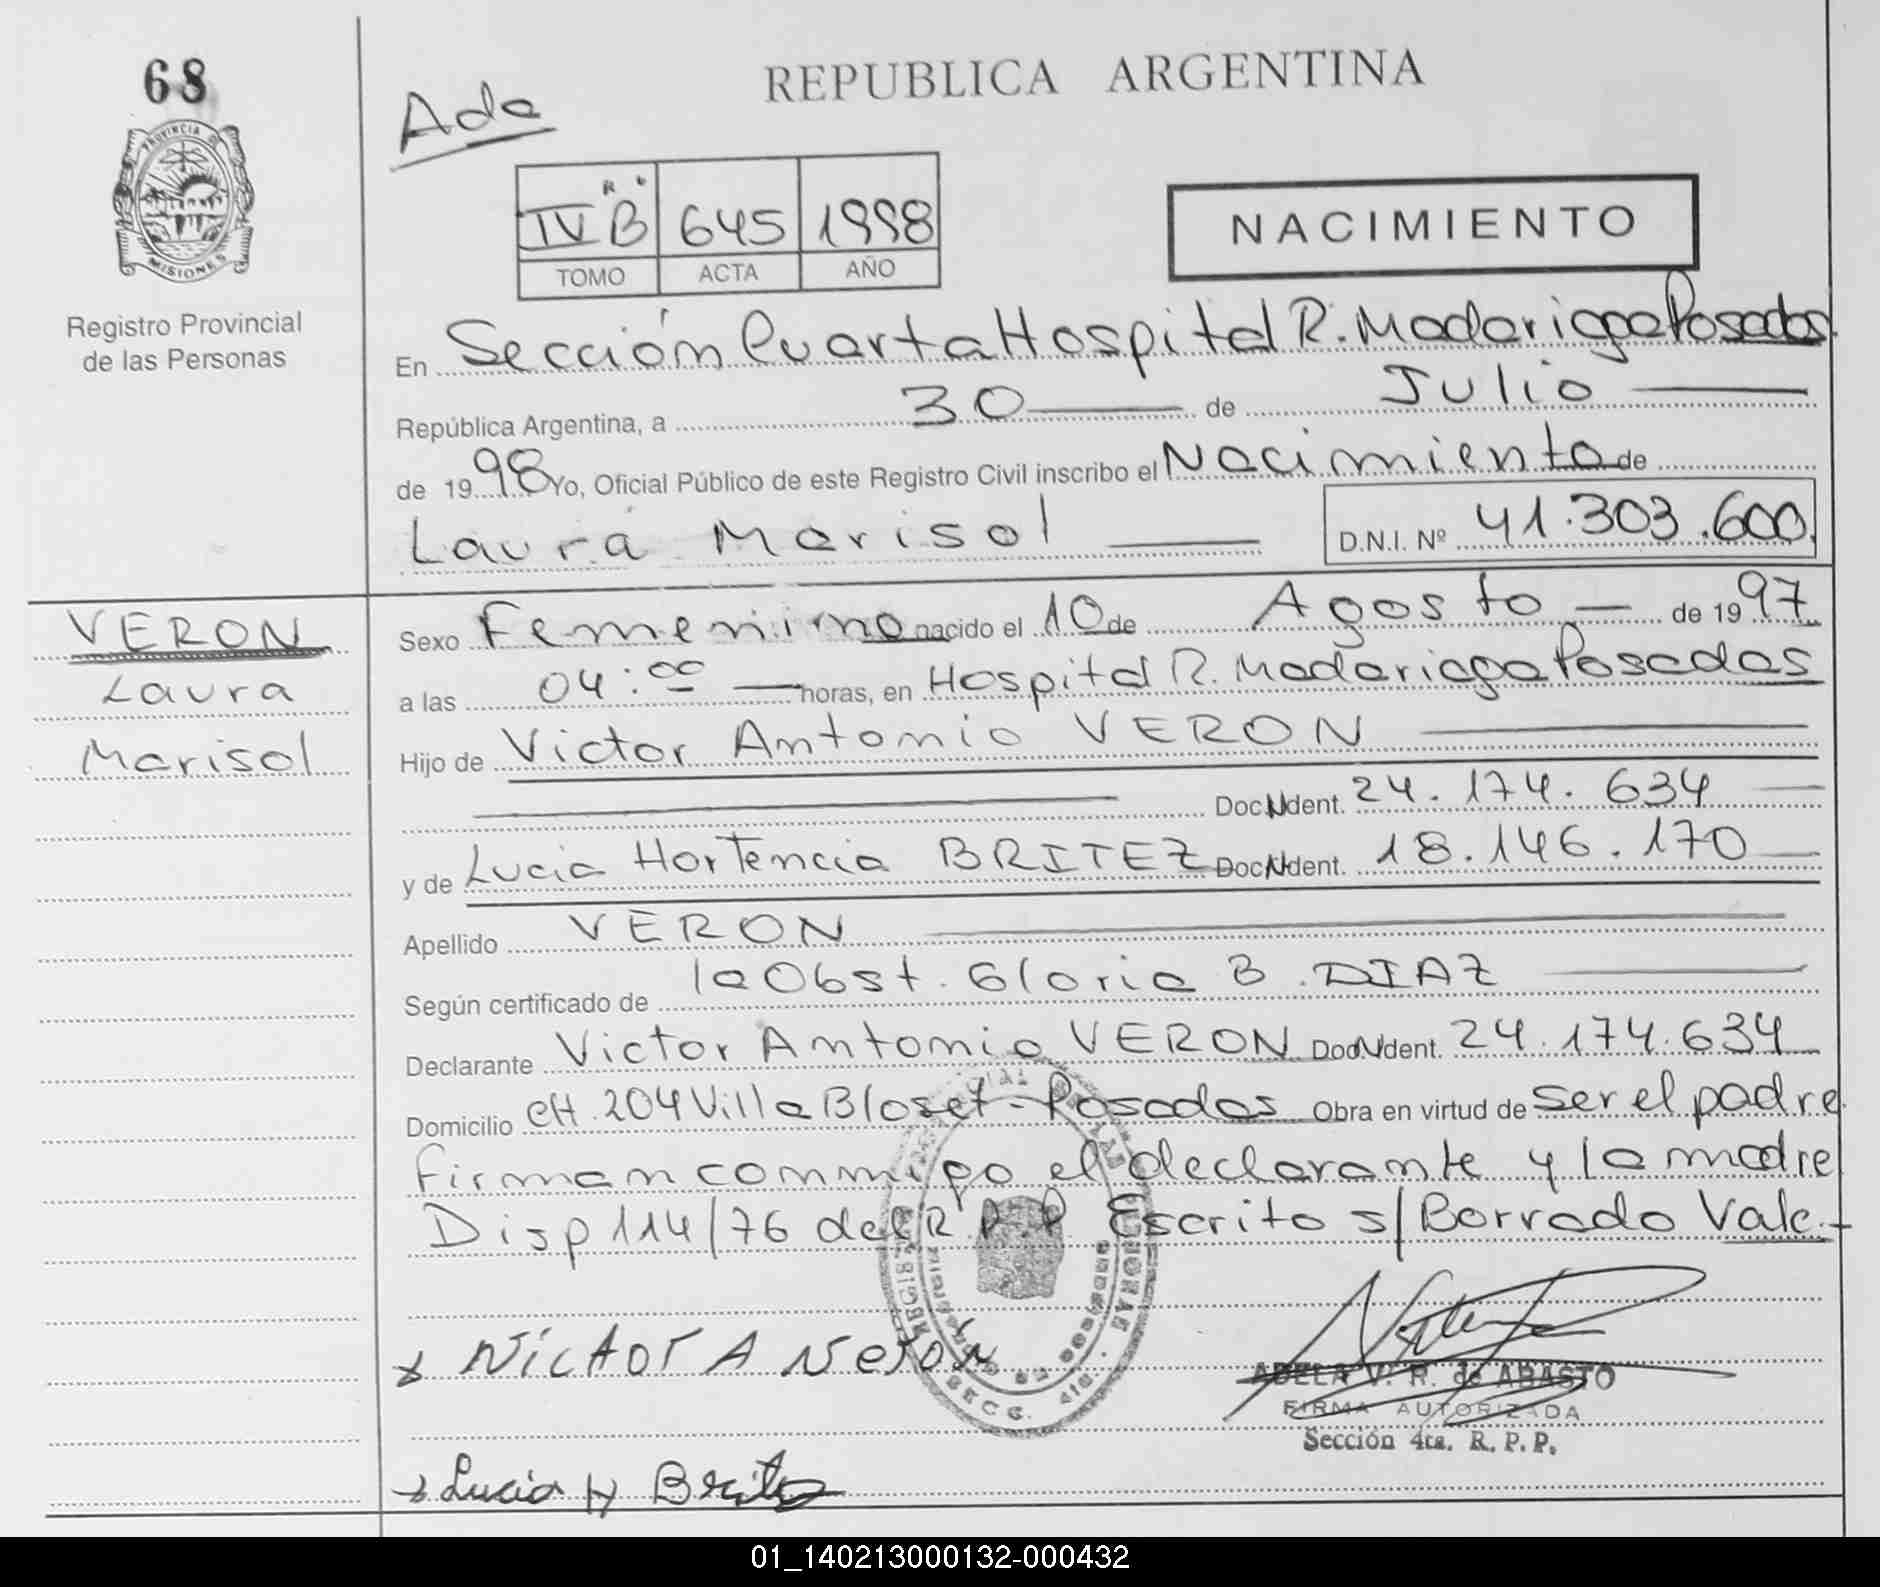 68
PROVINCIA DE
MISIONES
Registro Provincial
de las Personas
VERON
Laura
Marisol
Ada
REPUBLICA ARGENTINA
IV B 645 1998
TOMO ACTA AÑO
NACIMIENTO
En Sección Cuarta Hospital R. Madariaga Posadas
República Argentina, a 30 de Julio
de 1998 Yo, Oficial Público de este Registro Civil inscribo el Nacimiento de
Laura Marisol D.N.I. Nº 41.303.600
Sexo Femenino nacido el 10 de Agosto de 1997
a las 04:00 horas, en Hospital R. Madariaga Posadas
Hijo de Victor Antonio VERON
Doc. N Ident. 24.174.634
y de Lucia Hortencia BRITEZ Doc. N Ident. 18.146.170
Apellido VERON
Según certificado de la Obst. Gloria B. DIAZ
Declarante Victor Antonio VERON Doc. N Ident. 24.174.634
Domicilio CH. 204 Villa Bloset - Posadas Obra en virtud de ser el padre
Firman conmigo el declarante y la madre
Disp 114/76 del R.P.P. Escrito s/Borrado Vale.-
Victor A Verón
ADELA V. R. de ABASTO
FIRMA AUTORIZADA
Sección 4ta. R. P. P.
Lucia H Britez
01_140213000132-000432